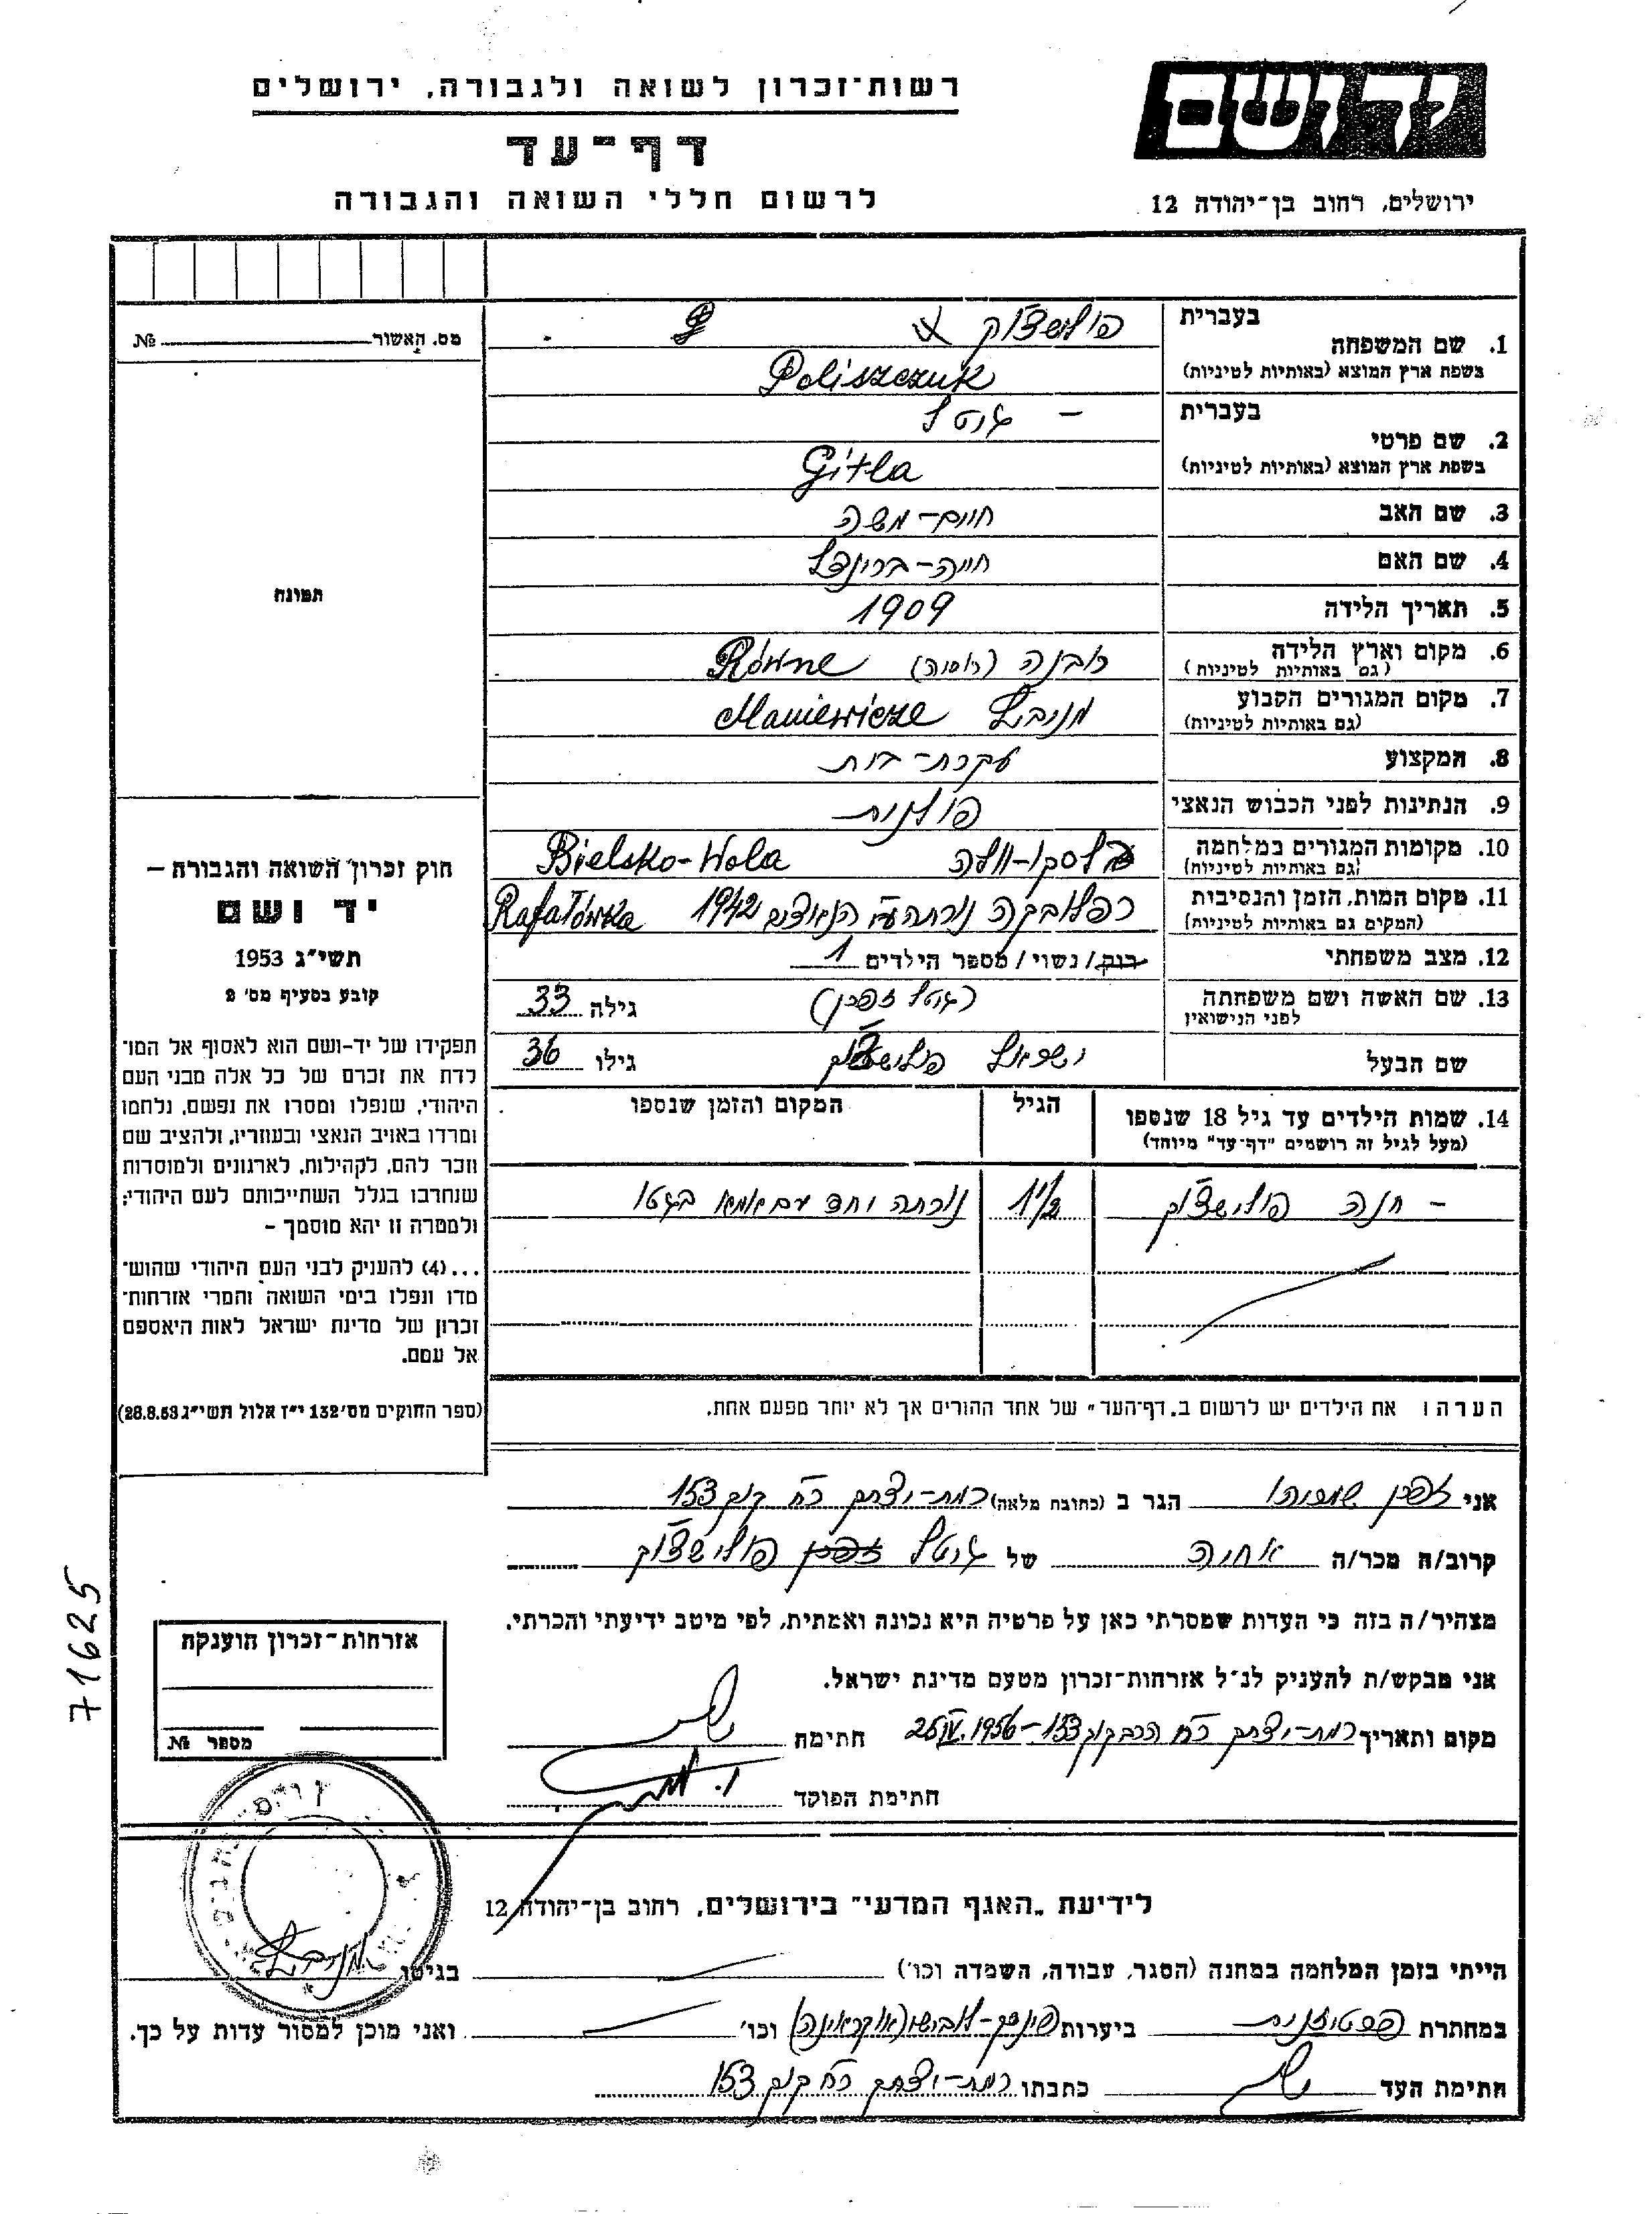 רשות־זכרון לשואה ולגבורה, ירושלים
ידושם
דף־עד
לרשום חללי השואה והגבורה
ירושלים, רחוב בן־יהודה 12
בעברית
פולישצ'וק
1. שם המשפחה
בשפת ארץ המוצא (באותיות לטיניות)
Poliszczuk
בעברית
גיטל –
2. שם פרטי
בשפת ארץ המוצא (באותיות לטיניות)
Gitla
3. שם האב
חיים-משה
4. שם האם
חייה-בריינדל
5. תאריך הלידה
1909
6. מקום וארץ הלידה
(גם באותיות לטיניות)
רובנה (רוסיה) Równe
7. מקום המגורים הקבוע
(גם באותיות לטיניות)
מניביץ Maniewicze
8. המקצוע
עקרת-בית
9. הנתינות לפני הכבוש הנאצי
פולנית
10. מקומות המגורים במלחמה
(גם באותיות לטיניות)
בילסקו-וולה Bielsko-Wola
11. מקום המות, הזמן והנסיבות
(המקום גם באותיות לטיניות)
רפלובקה נורתה ע"י הנאצים 1942 Rafałówka
12. מצב משפחתי
רווק / נשוי / מספר הילדים 1
13. שם האשה ושם משפחתה
לפני הנישואין
(גיטל זפרן) גילה 33
שם הבעל
ישראל פולישצ'וק גילו 36
14. שמות הילדים עד גיל 18 שנספו
(מעל לגיל זה רושמים "דף־עד" מיוחד)
הגיל
המקום והזמן שנספו
– חנה פולישצ'וק
1 1/2
נורתה יחד עם אמא בגטו
הערה: את הילדים יש לרשום ב„דף־העד" של אחד ההורים אך לא יותר מפעם אחת.
מס. האשור № 
תמונה
חוק זכרון השואה והגבורה –
יד ושם
תשי"ג 1953
קובע בסעיף מס' 2
תפקידו של יד-ושם הוא לאסוף אל המו־
לדת את זכרם של כל אלה מבני העם
היהודי, שנפלו ומסרו את נפשם, נלחמו
ומרדו באויב הנאצי ובעוזריו, ולהציב שם
וזכר להם, לקהילות, לארגונים ולמוסדות
שנחרבו בגלל השתייכותם לעם היהודי;
ולמטרה זו יהא מוסמך –
...(4) להעניק לבני העם היהודי שהוש־
מדו ונפלו בימי השואה והמרי אזרחות־
זכרון של מדינת ישראל לאות היאספם
אל עמם.
(ספר החוקים מס' 132 י"ז אלול תשי"ג 28.8.53)
אני זפרן הגר ב (כתובת מלאה) רמת-יצחק 153
קרוב/ה מכר/ה אחיה של גיטל זפרן פולישצ'וק
מצהיר/ה בזה כי העדות שמסרתי כאן על פרטיה היא נכונה ואמתית, לפי מיטב ידיעתי והכרתי.
אני מבקש/ת להעניק לנ"ל אזרחות־זכרון מטעם מדינת ישראל.
מקום ותאריך רמת-יצחק 153 – 25.IV.1956 חתימה
חתימת הפוקד
71625
אזרחות־זכרון הוענקה
מספר №
לידיעת „האגף המדעי" בירושלים, רחוב בן־יהודה 12
הייתי בזמן המלחמה במחנה (הסגר, עבודה, השמדה וכו') בגיטו מניביץ
במחתרת פרטיזנית ביערות פינסק (אוקראינה) וכו' ואני מוכן למסור עדות על כך.
חתימת העד כתבתו רמת-יצחק 153